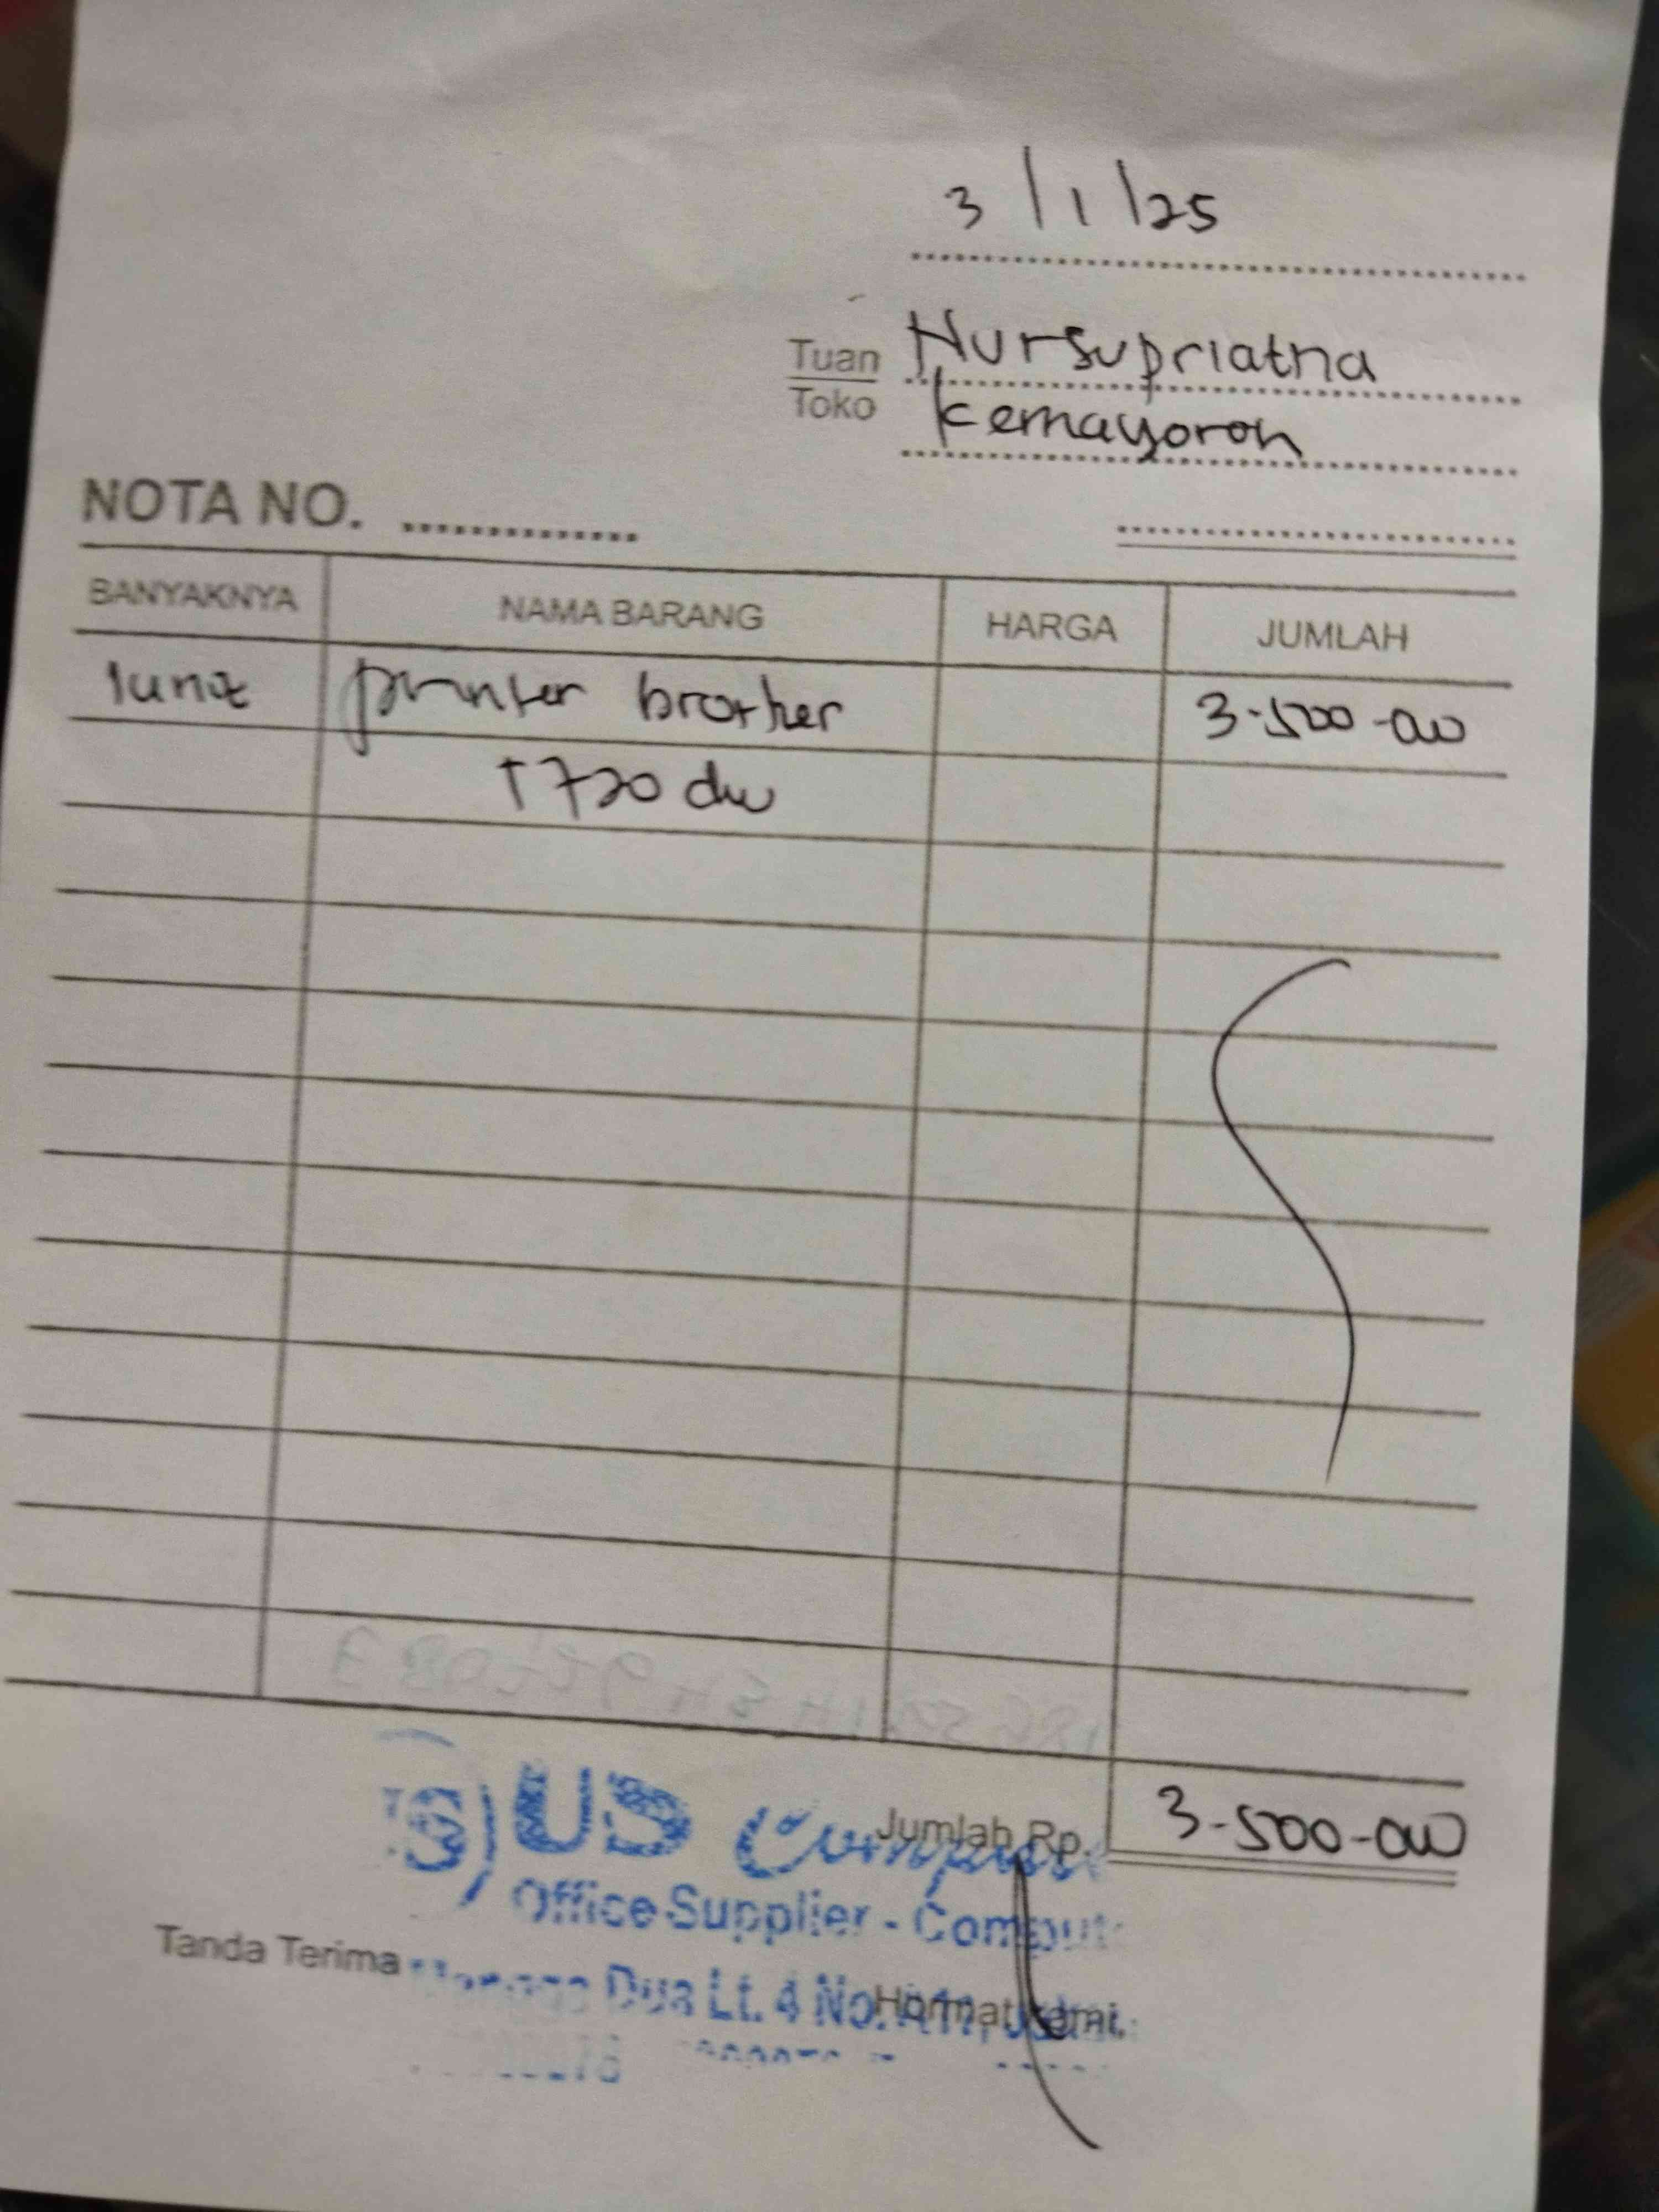 3/1/25
Tuan Nursupriatna
Toko Kemayoran
NOTA NO. ..............
BANYAKNYA NAMA BARANG HARGA JUMLAH
1 unit printer brother 3-500-000
T720 dw
US
Jumlah Rp. 3-500-000
Office Supplier - Comput
Tanda Terima
Dua Lt. 4 No.
Hormat kami,